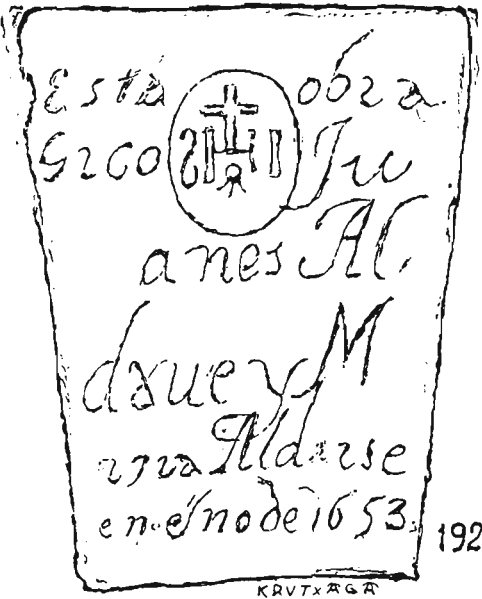 Esta obra
Gico IHS Ju
anes Al
daue y M
Aldaise
en el ño de 1653
192
KRUTXAGA